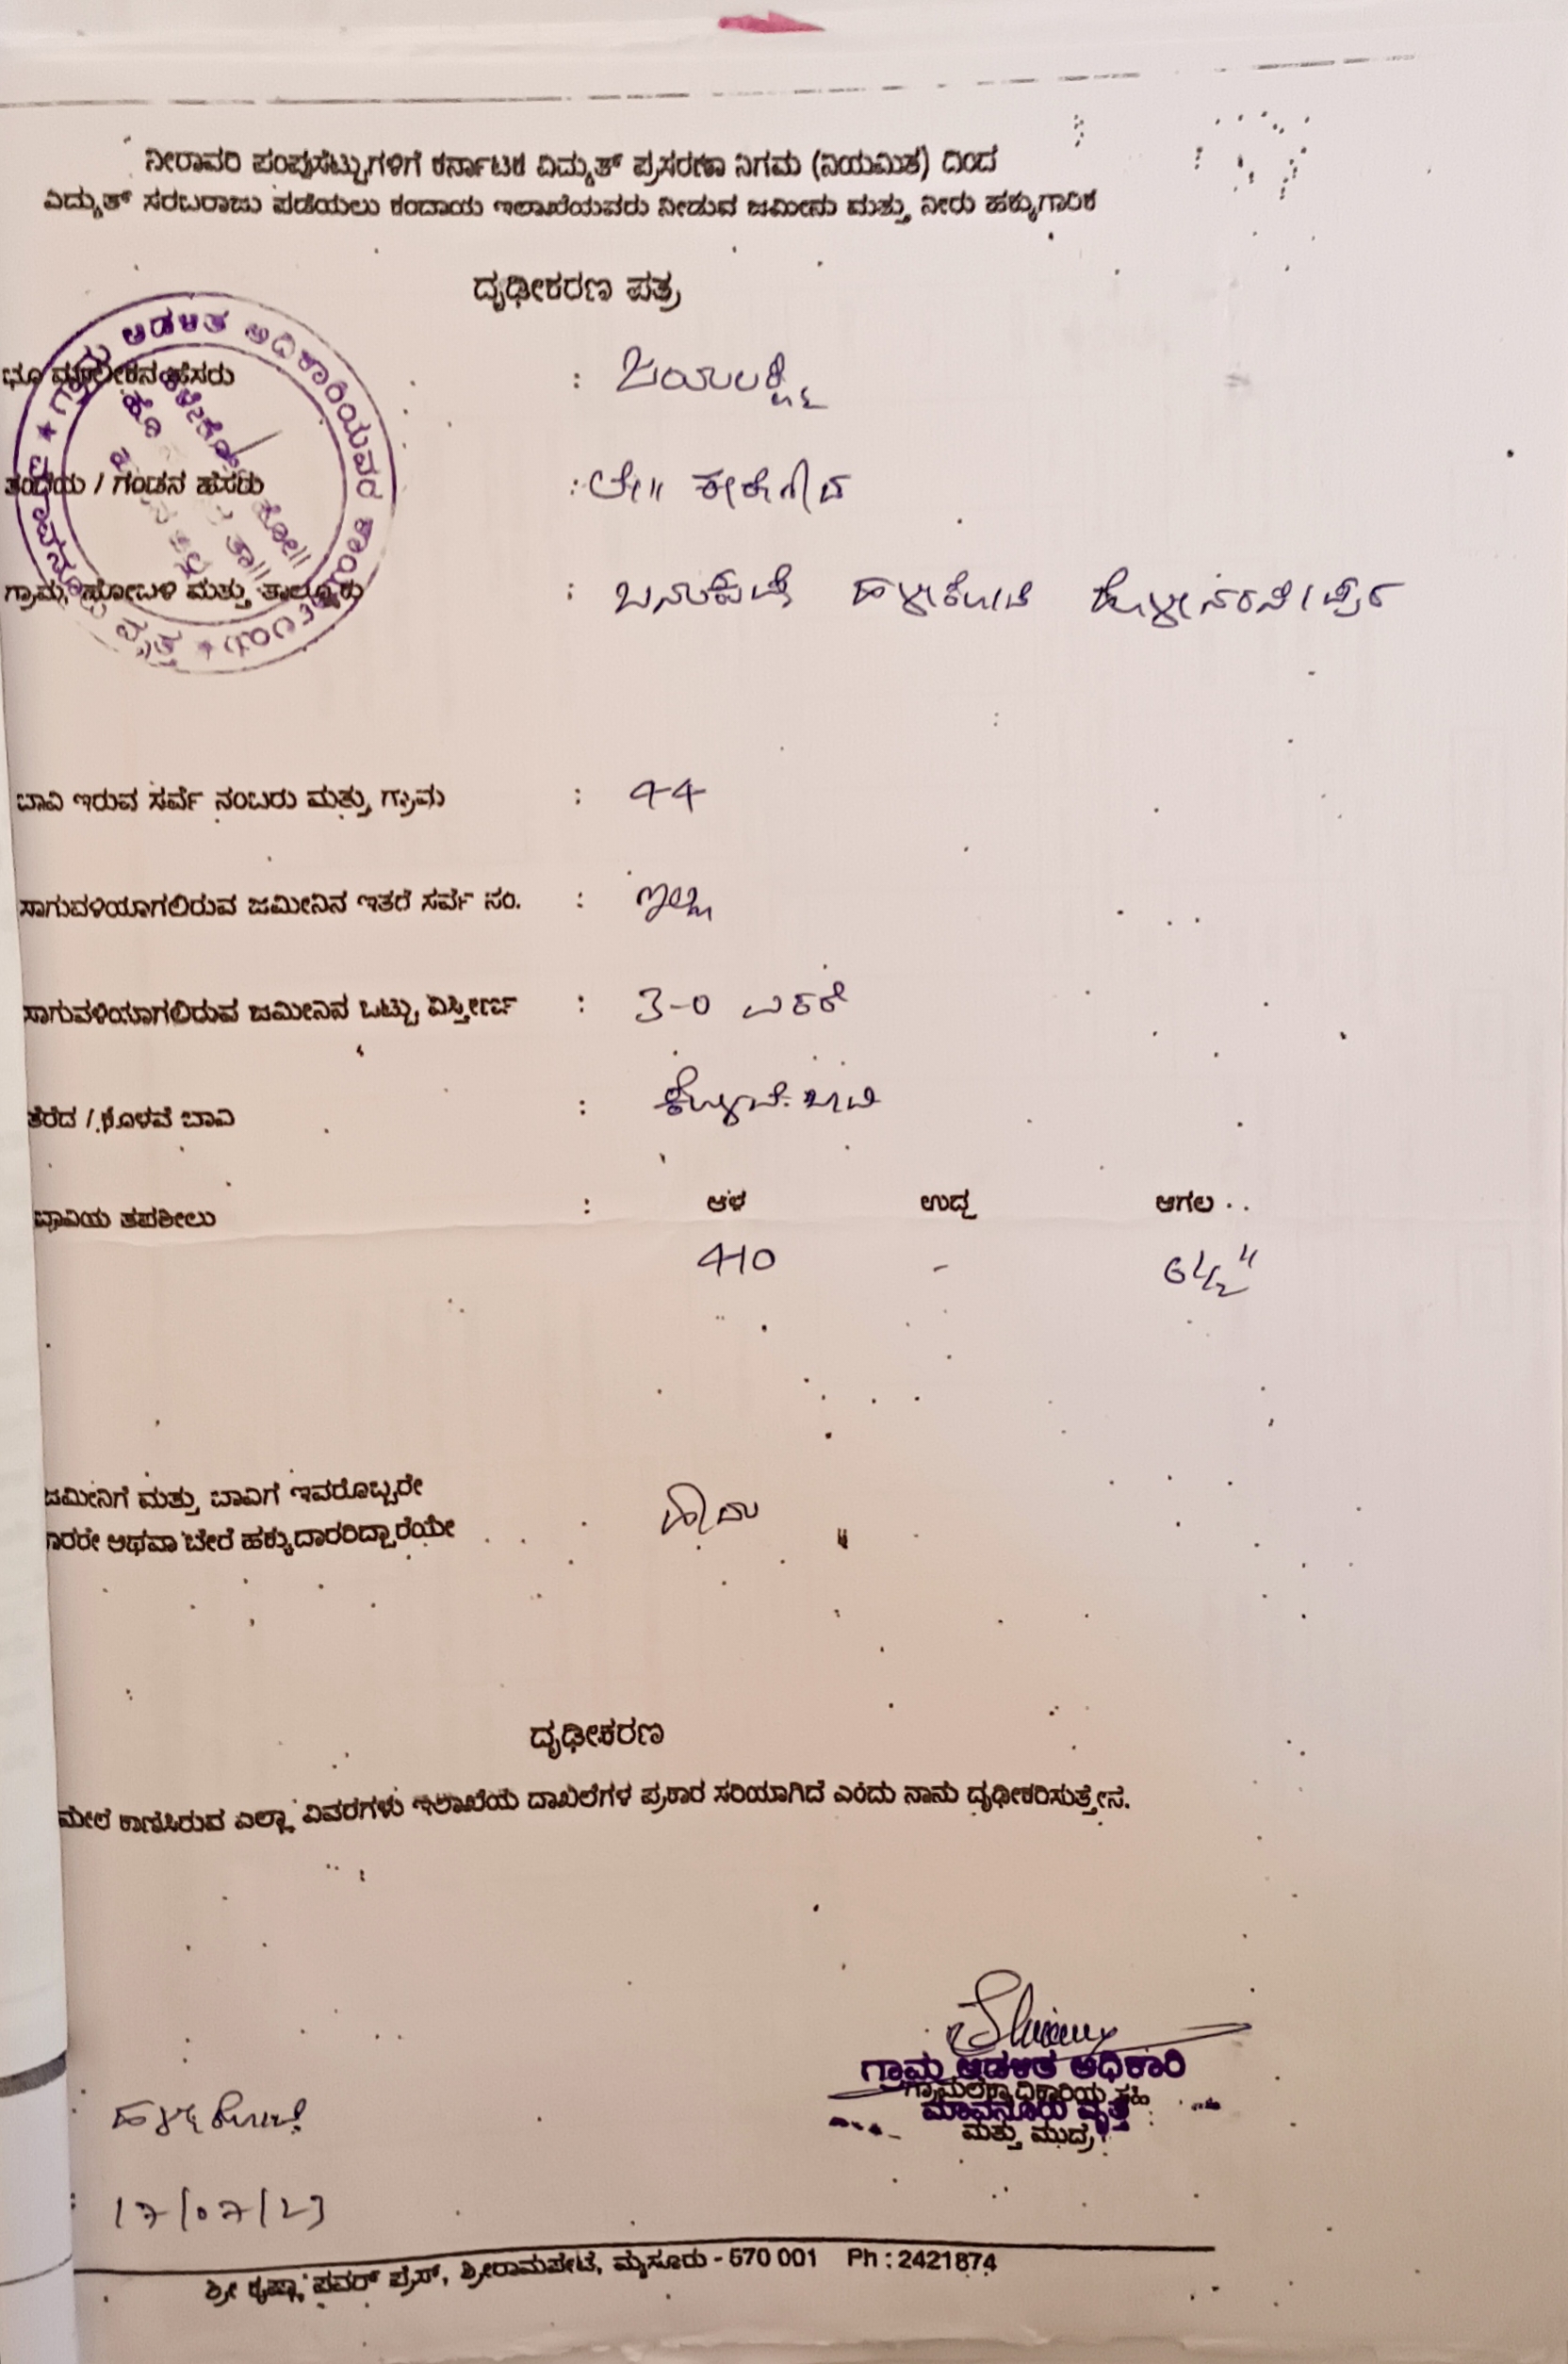 ನೀರಾವರಿ ಪಂಪುಸೆಟ್ಟುಗಳಿಗೆ ಕರ್ನಾಟಕ ವಿದ್ಯುತ್ ಪ್ರಸರಣಾ ನಿಗಮ (ನಿಯಮಿತ) ದಿಂದ
ವಿದ್ಯುತ್ ಸರಬರಾಜು ಪಡೆಯಲು ಕಂದಾಯ ಇಲಾಖೆಯವರು ನೀಡುವ ಜಮೀನು ಮತ್ತು ನೀರು ಹಕ್ಕುಗಾರಿಕೆ
ದೃಢೀಕರಣ ಪತ್ರ
ಗ್ರಾಮ ಆಡಳಿತ ಅಧಿಕಾರಿಯವರ ಕಾರ್ಯಾಲಯ
ಭೂ ಮಾಲೀಕನ ಹೆಸರು : ಜಯಲಕ್ಷ್ಮಿ
ತಂದೆಯ / ಗಂಡನ ಹೆಸರು : ಲೇ॥
ಗ್ರಾಮ, ಹೋಬಳಿ ಮತ್ತು ತಾಲ್ಲೂಕು : ಹಳ್ಳಿಮೈಸೂರು
ಬಾವಿ ಇರುವ ಸರ್ವೆ ನಂಬರು ಮತ್ತು ಗ್ರಾಮ : 44
ಸಾಗುವಳಿಯಾಗಲಿರುವ ಜಮೀನಿನ ಇತರೆ ಸರ್ವೆ ನಂ. : ಇಲ್ಲ
ಸಾಗುವಳಿಯಾಗಲಿರುವ ಜಮೀನಿನ ಒಟ್ಟು ವಿಸ್ತೀರ್ಣ : 3-0 ಎಕರೆ
ತೆರೆದ / ಕೊಳವೆ ಬಾವಿ : ಕೊಳವೆ ಬಾವಿ
ಬಾವಿಯ ತಪಶೀಲು : ಆಳ ಉದ್ದ ಅಗಲ
410 - 6½"
ಜಮೀನಿಗೆ ಮತ್ತು ಬಾವಿಗೆ ಇವರೊಬ್ಬರೇ
ದಾರರೇ ಅಥವಾ ಬೇರೆ ಹಕ್ಕುದಾರರಿದ್ದಾರೆಯೇ ಹೌದು
ದೃಢೀಕರಣ
ಮೇಲೆ ಕಾಣಿಸಿರುವ ಎಲ್ಲಾ ವಿವರಗಳು ಇಲಾಖೆಯ ದಾಖಲೆಗಳ ಪ್ರಕಾರ ಸರಿಯಾಗಿದೆ ಎಂದು ನಾನು ದೃಢೀಕರಿಸುತ್ತೇನೆ.
ಗ್ರಾಮ ಆಡಳಿತ ಅಧಿಕಾರಿ
ಗ್ರಾಮಲೆಕ್ಕಾಧಿಕಾರಿಯ ಸಹಿ
ಮಾವನೂರು ವೃತ್ತ
ಮತ್ತು ಮುದ್ರೆ
: 17/07/23
ಶ್ರೀ ಕೃಷ್ಣಾ ಪವರ್ ಪ್ರೆಸ್, ಶ್ರೀರಾಮಪೇಟೆ, ಮೈಸೂರು - 570 001 Ph : 2421874